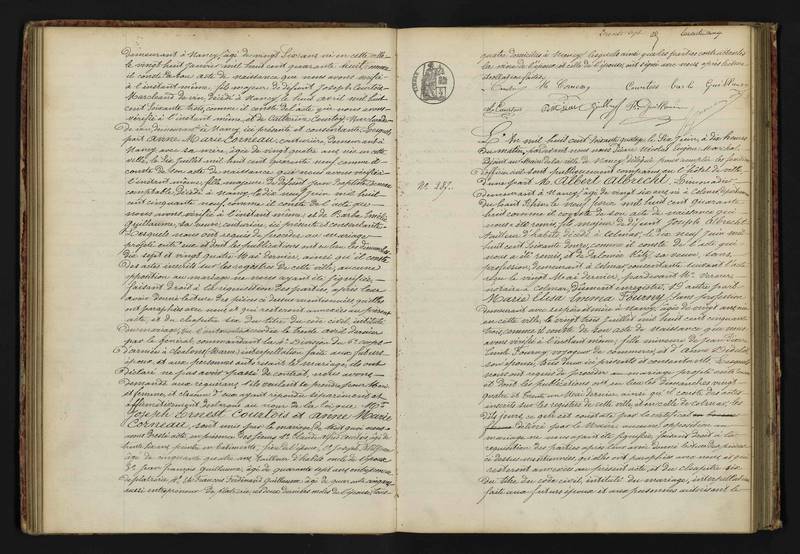 demeurant à Nancy, âgé de vingt six ans né en cette ville
le vingt huit janvier mil huit cent quarante huit, comme
il conste de son acte de naissance que nous avons vérifié
à l'instant même, fils majeur de défunt Joseph Courtois
Marchand de vin, décédé à Nancy le huit avril mil huit
cent soixante trois, comme il conste de l'acte que nous avons
vérifié à l'instant même, et de Catherine Courtois, Marchande
de vin demeurant à Nancy, ici présente et consentante
part Anne Marie Corneau, couturière, demeurant à
Nancy avec sa mère, âgée de vingt quatre ans née en cette
ville, le six Juillet mil huit cent quarante neuf comme il
conste de son acte de naissance que nous avons vérifié
à l'instant même, fille majeure de défunt Jean Baptiste Corneau
comptable décédé à Nancy, le dix neuf juin mil huit
cent cinquante neuf, comme il conste de l'acte que
nous avons vérifié à l'instant même, et de Barbe Emélie
Guillaume, sa veuve, couturière, ici présente et consentante
Lesquels nous ont requis de procéder au mariage
projeté entre eux et dont les publications ont eu lieu les dimanches
dix sept et vingt quatre Mai dernier, ainsi qu'il conste
des actes inscrits sur les registres de cette ville, aucune
opposition au mariage ne nous ayant été signifiée,
faisant droit à la réquisition des parties après leur
avoir donné lecture des pièces ci dessus mentionnées qu'elles
ont paraphées avec nous et qui resteront annexées au présent
acte, et du chapitre six du titre du code civil, intitulé
du mariage, le trente avril dernier
par le général commandant la division du 6e corps
d'armée à Chalons Marne interpellation faite aux futurs
époux, et aux personnes autorisant le mariage, ils ont
déclaré ne pas avoir passé de contrat, nous avons
demandé aux requérans s'ils veulent se prendre pour Mari
et femme, et chacun d'eux ayant répondu séparément et
affirmativement, déclarons au nom de la loi que Mr
Joseph Ernest Courtois et Anne Marie
Corneau, sont unis par le mariage, de tout quoi nous
avons dressé acte en présence des sieurs Claude
âgé de cinquante ans, Tailleur d'habits oncle de l'époux
3e Jean François Guillaume, âgé de quarante sept ans entrepreneur
de platrerie, 4e François Ferdinand Guillaume, âgé de quarante cinq ans
aussi entrepreneur de platrerie, ces deux derniers oncles de l'épouse, tous
Trente sept
quatre domiciliés à Nancy lesquels ainsi que les parties contractantes
la mère de l'époux, et celle de l'épouse, ont signé avec nous après lecture
Courtois Barbe Guillaume
L'An mil huit cent soixante quatorze, le six Juin, à dix heures
du matin, pardevant nous Jean Nicolas Eugène Marchal,
Adjoint au Maire de la ville de Nancy délégué pour remplir les fonctions
d'officier civil sont publiquement comparus en l'hôtel de ville
d'une part Mr Albert Albrecht, Limonadier
No 237.
demeurant à Nancy, âgé de vingt six ans né à Colmar, département
du haut Rhin le neuf mil huit cent quarante
huit comme il conste de son acte de naissance qui
nous a été remis, fils majeur de défunt Joseph Albrecht
Tailleur d'habits décédé à Colmar, le six neuf Juin mil
huit cent soixante douze, comme il conste de l'acte qui
nous a été remis, et de Salomée sa veuve, sans
profession, demeurant à Colmar, consentante suivant l'acte
reçu le vingt Mai dernier, pardevant Me
notaire à Colmar, dûment enregistré, et d'autre part
Marie Elisa Emma Fourny, sans profession
demeurant avec ses père et mère à Nancy, âgée de vingt ans née
en cette ville, le vingt trois juillet mil huit cent cinquante
trois, comme il conste de son acte de naissance que nous
avons vérifié à l'instant même, fille mineure de Jean
Fourny, voyageur de commerce, et d'Anne
son épouse, tous deux ici présents et consentants. Lesquels
nous ont requis de procéder au mariage projeté entre eux
et dont les publications ont eu lieu les dimanches vingt
quatre et trente un Mai dernier ainsi qu'il conste des actes
inscrits sur les registres de cette ville et en celle de Colmar, les
dits jours, ce qui est constaté par le certificat
délivré par le Maire aucune opposition au
mariage ne nous ayant été signifiée, faisant droit à la
réquisition des parties après leur avoir donné lecture des pièces
ci dessus mentionnées qu'elles ont paraphées avec nous et qui
resteront annexées au présent acte, et du chapitre six
du titre du code civil, intitulé du mariage, interpellation
faite aux futurs époux et aux personnes autorisant le